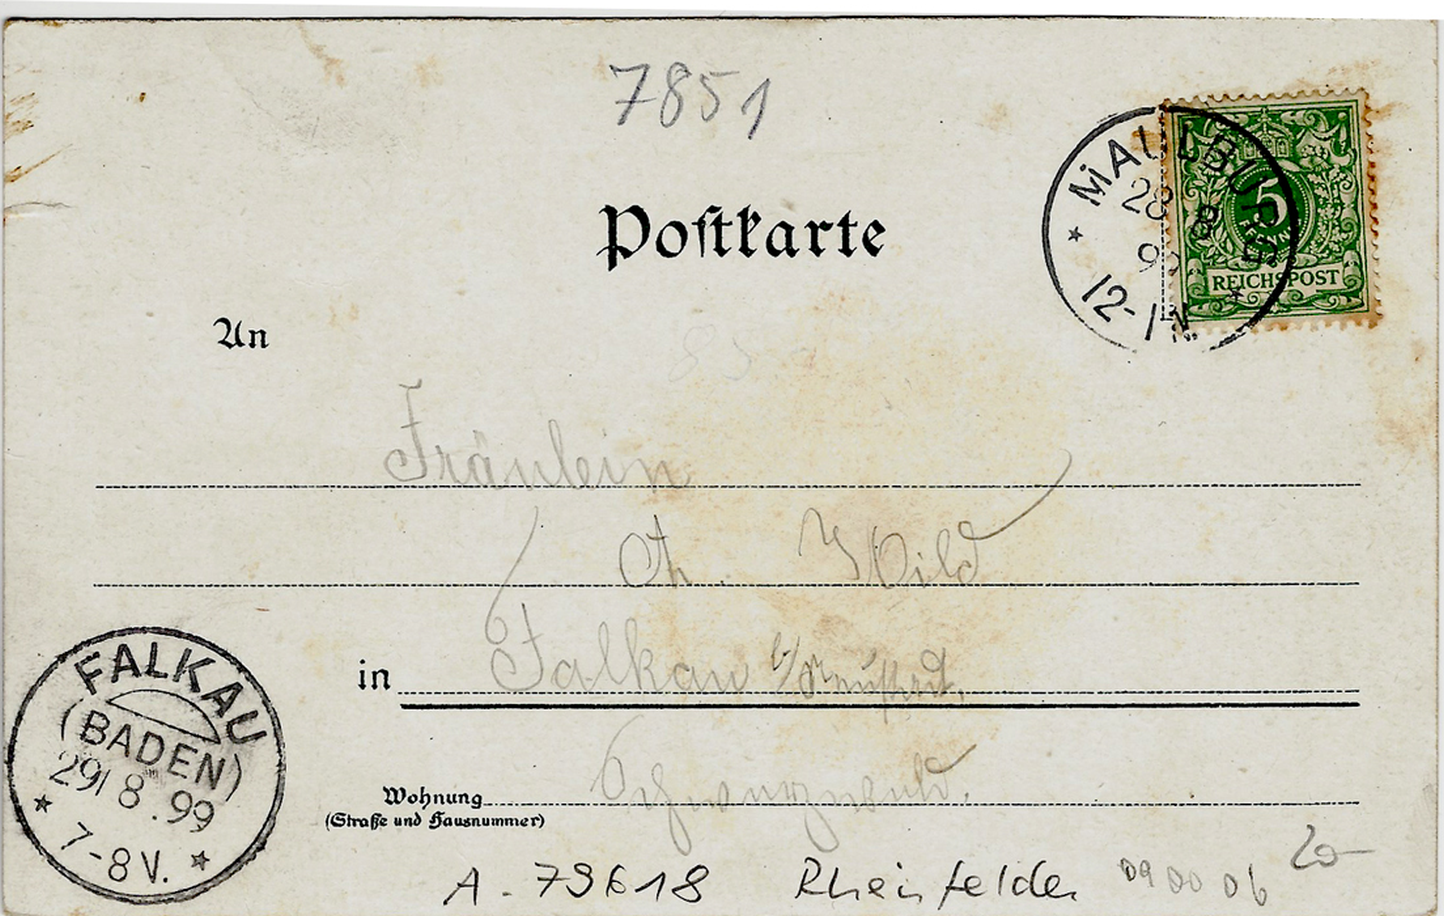 7851
Postkarte
MAULBURG
28 8 99
12-1N.
5
PFENNIG
REICHSPOST
An
Fräulein
Wild
in Falkau b/Neustadt,
Schwarzwald.
Wohnung
(Straße und Hausnummer)
FALKAU
(BADEN)
29/8.99
7-8V.
A - 79618 Rheinfelden 090006 20-